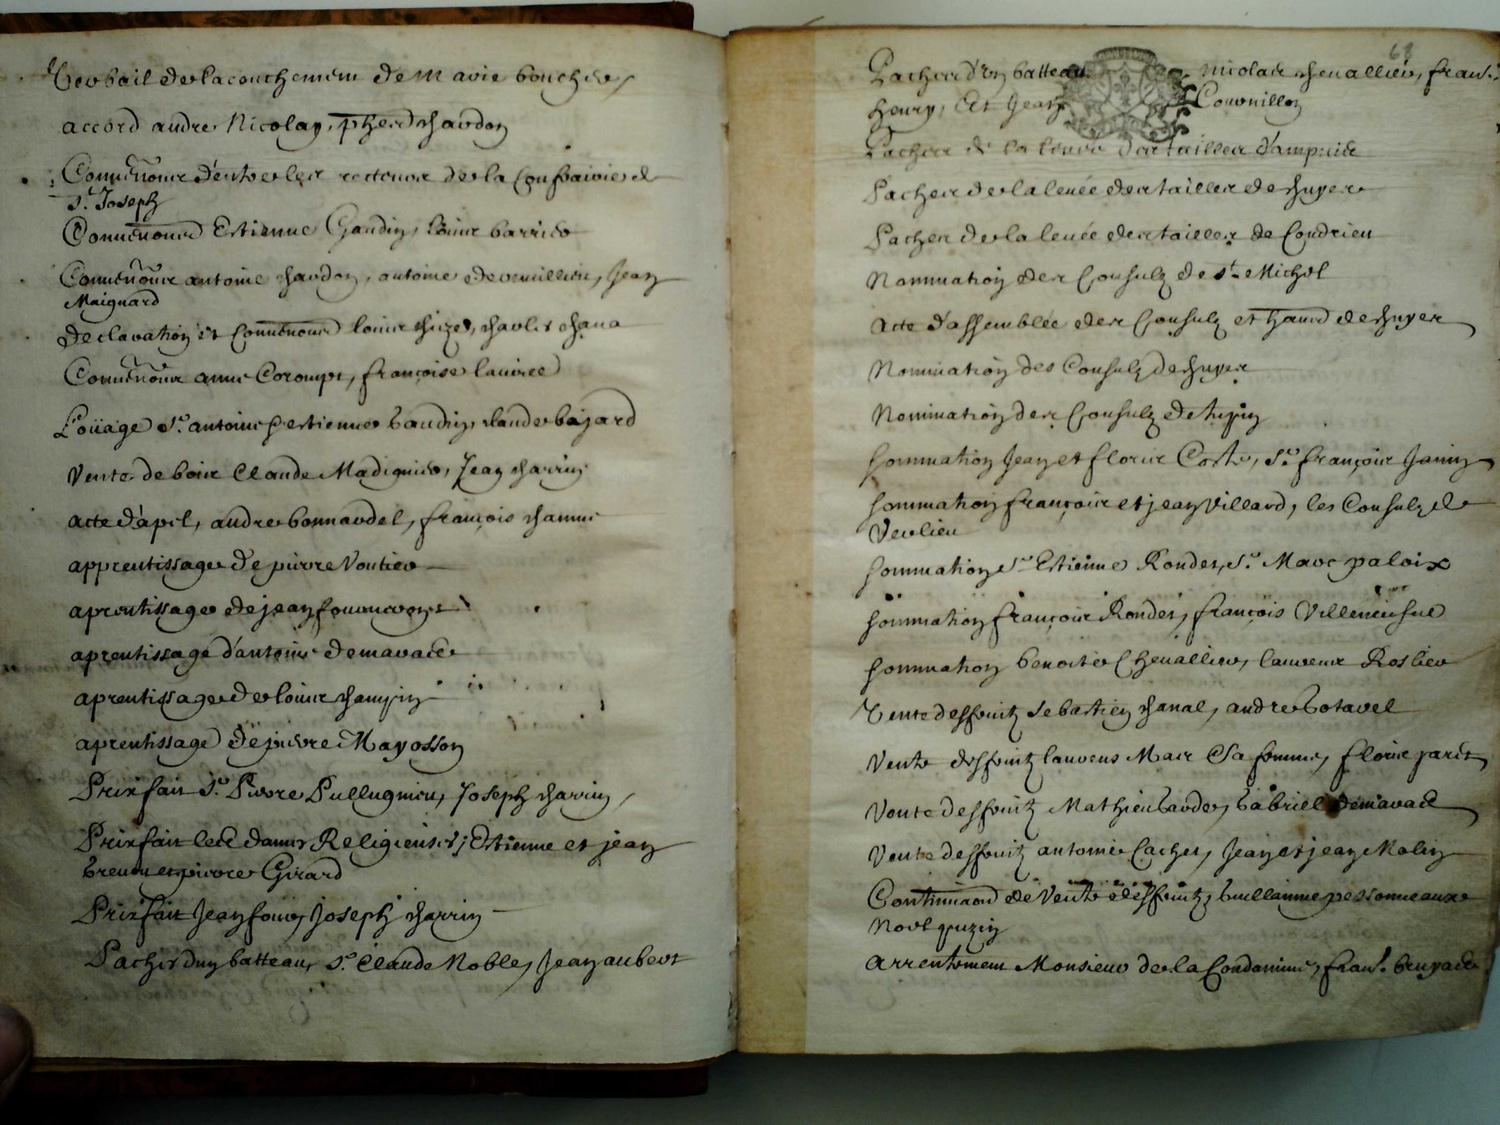 Verbail de lacouchement de Marie boucher
accord andre Nicolay, pherd chardon
Conuenõns d'entre les recteurs de la Confrairie de
st. Joseph
Conuenõns Estienne Gaudin, Louis barrier
Conuenõns antoine chardon, antoine deveuilleu, Jean
Maignard
Declaration et Conuenõns louis chuzel, charles chana
Conuenõns anne Corompt, françoise
Loüage sr. antoine estienne baudin, claude bajard
Vente de bois Claude Madignier, Jean charrin
acte d'apel, andre bonnardel, françois channe
apprentissage de pierre Voutier
aprentissage de jean
aprentissage d'antoine demarade
aprentissage de louis champin
aprentissage de pierre Mayosson
Prixfait sr. Pierre Pullugnieu, Joseph charrin
Prixfait les dames Religieuses, Estienne et jean
breun et pierre Girard
Prixfait Jean foui, Joseph charrin
Pachés d'un batteau, sr. Claude Noble, Jean aubert
68
Pachés d'un batteau Nicolas cheuallier, frans.
henry, et Jean Couvuillon
Pachés de la leuée des tailles d'ampuis
Pachés de la leuée des tailles de chuyer
Pachés de la leuée des tailles de Condrieu
Nomination des Consulz de st. Michel
Acte d'assemblée des Consulz et hans de chuyer
Nomination des Consulz de chuyer
Nomination des Consulz de lupin
sommation Jean et floris Coste, sr. françois Janin
sommation françois et jean Villard, les Consulz de
Verlieu
sommation sr. Estienne Rondet, sr. Marc paloix
sommation françois Rondet, françois Villeneufue
sommation benoitte Cheuallier, laurens Roslier
Vente desfruitz sebastien chanal, andre botavel
Vente desfruitz laurens Mais & sa femme, floris paret
Vente desfruitz Mathieu bardet, Gabriel demarade
Vente desfruitz antoine Cachet, Jean et jean Molin
Continuaon de Vente desfruitz, Guillaume pessonneaux
Noel puzin
Arrentement Monsieur de la Condamine, frans. bruyas